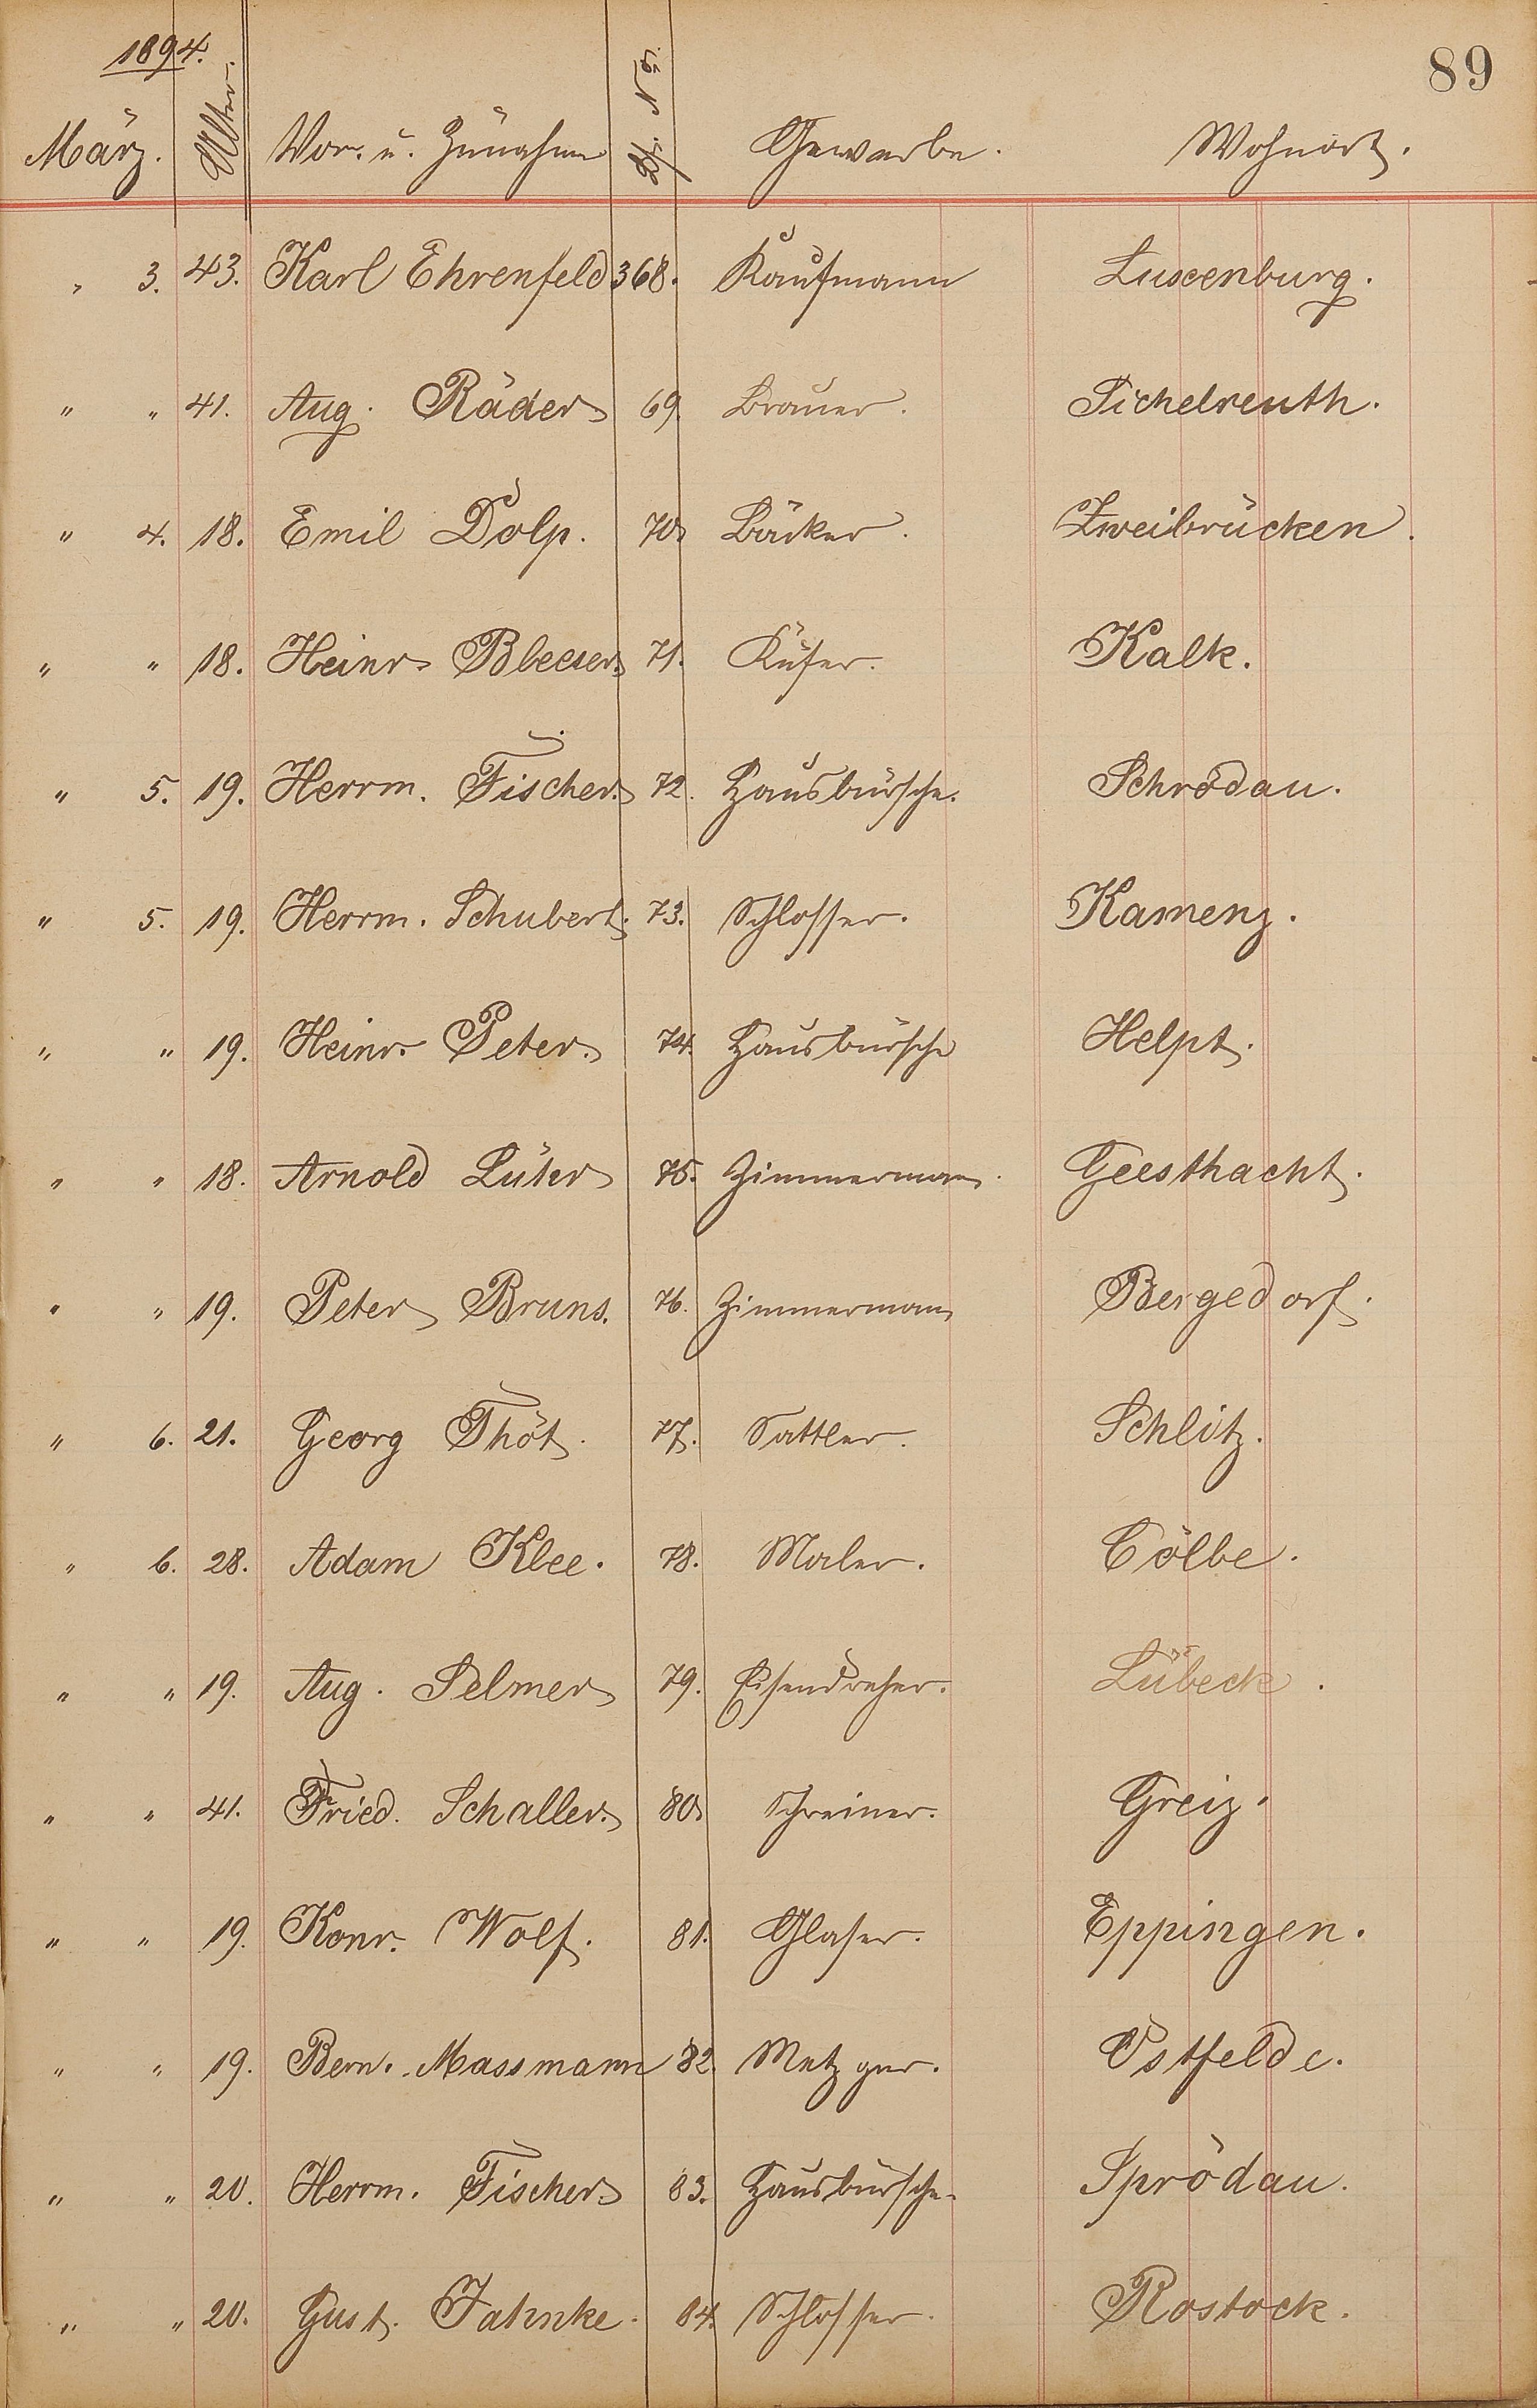 1894.
89
März. Alter. Vor. u. Zunahme Lf. No. Gewerbe. Wohnort.
" 3. 43. Karl Ehrenfeld 368. Kaufmann Luxenburg.
" " 41. Aug. Räder 69. Brauer. Pichelreuth.
" 4. 18. Emil Dolp. 70. Bäcker. Zweibrücken.
" " 18. Heinr. Bleeser. 71. Küfer. Kalk.
" 5. 19. Herrm. Fischer. 72. Hausbursche. Schrödau.
" 5. 19. Herrm. Schubert. 73. Schlosser. Kamenz.
" " 19. Heinr. Peter. 74. Hausbursche Helpt.
" " 18. Arnold Lüter 75. Zimmermann. Geesthacht.
" " 19. Peter Bruns. 76. Zimmermann Bergedorf.
" 6. 21. Georg Thöt. 77. Sattler. Schlitz.
" 6. 28. Adam Klee. 78. Maler. Cölbe.
" " 19. Aug. Selmer 79. Eisendreher. Lübeck.
" " 41. Fried. Schaller. 80. Schreiner. Greiz.
" " 19. Konr. Wolf. 81. Glaser. Eppingen.
" " 19. Bern. Massmann 82. Metzger. Ostfelde.
" " 20. Herrm. Fischer. 83. Hausbursche. Sprödau.
" " 20. Gust. Jahnke. 84. Schlosser. Rostock.